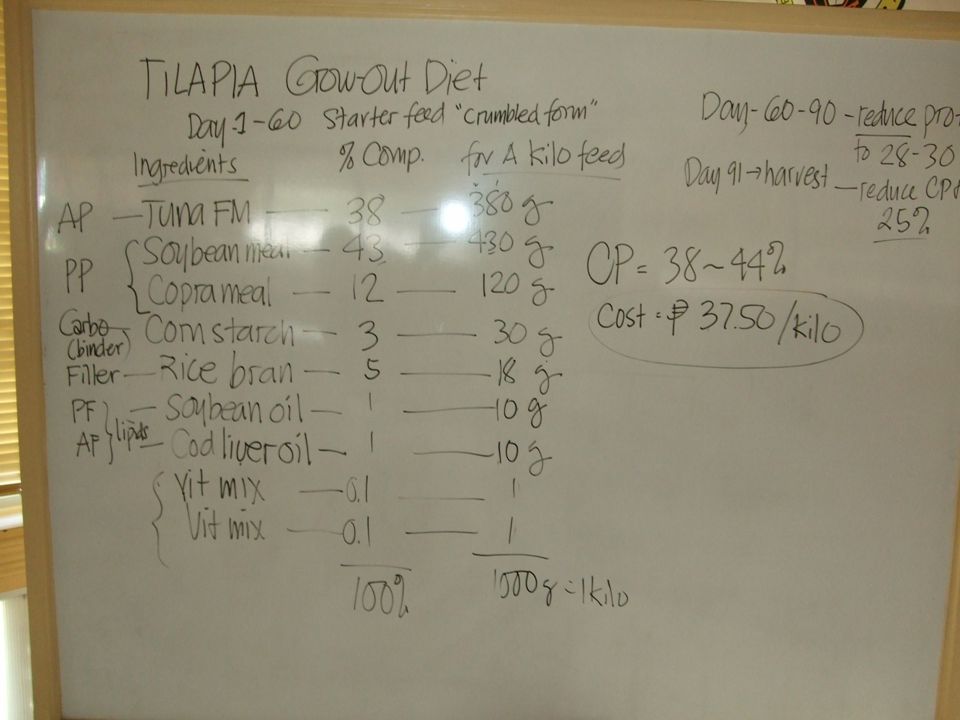 TILAPIA Grow-Out Diet
Day-1-60 Starter feed "crumbled form"
Ingredients % Comp. for A kilo feed
AP — Tuna FM — 38 — 380 g
PP { Soybean meal — 43 — 430 g
Copra meal — 12 — 120 g
Carbo (binder) — Corn starch — 3 — 30 g
Filler — Rice bran — 5 — 18 g
PF } lipids — Soybean oil — 1 — 10 g
AF — Cod liver oil — 1 — 10 g
{ Vit mix — 0.1 — 1
Vit mix — 0.1 — 1
100% 1000g = 1 kilo
Day-60-90 - reduce pro-
to 28-30
Day 91 → harvest — reduce CP
25%
CP = 38~44%
Cost = ₱ 37.50/kilo